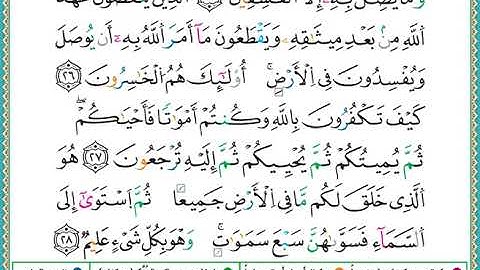 وَمَا يُضِلُّ بِهِۦٓ إِلَّا ٱلْفَٰسِقِينَ ۝٢٥ ٱلَّذِينَ يَنقُضُونَ عَهْدَ
ٱللَّهِ مِنۢ بَعْدِ مِيثَٰقِهِۦ وَيَقْطَعُونَ مَآ أَمَرَ ٱللَّهُ بِهِۦٓ أَن يُوصَلَ
وَيُفْسِدُونَ فِى ٱلْأَرْضِ ۚ أُو۟لَٰٓئِكَ هُمُ ٱلْخَٰسِرُونَ ۝٢٦
كَيْفَ تَكْفُرُونَ بِٱللَّهِ وَكُنتُمْ أَمْوَٰتًا فَأَحْيَٰكُمْ ۖ
ثُمَّ يُمِيتُكُمْ ثُمَّ يُحْيِيكُمْ ثُمَّ إِلَيْهِ تُرْجَعُونَ ۝٢٧ هُوَ
ٱلَّذِى خَلَقَ لَكُم مَّا فِى ٱلْأَرْضِ جَمِيعًا ثُمَّ ٱسْتَوَىٰٓ إِلَى
ٱلسَّمَآءِ فَسَوَّىٰهُنَّ سَبْعَ سَمَٰوَٰتٍ ۚ وَهُوَ بِكُلِّ شَىْءٍ عَلِيمٌ ۝٢٨